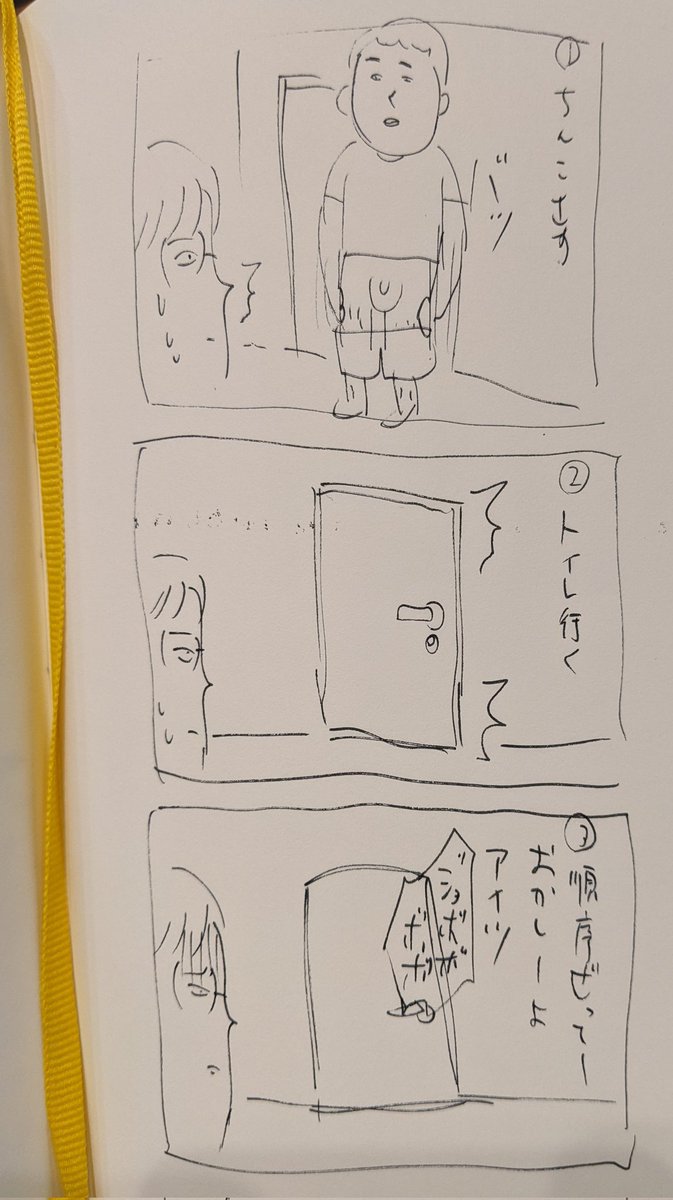 ① ちんこ出す
ジーッ
② トイレ行く
③ 順序ぜってー
おかしーよ
アイツ
ジョボボ
ボボ